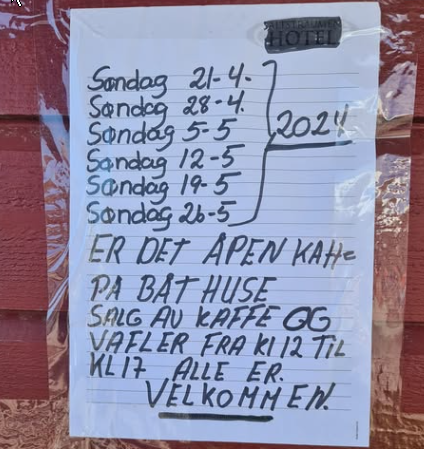 HOTEL
Søndag 21-4-
Søndag 28-4.
Søndag 5-5
2024
Søndag 12-5
Søndag 19-5
Søndag 26-5
ER DET ÅPEN KAFFE
PÅ BÅT HUSE
SALG AV KAFFE OG
VAFLER FRA Kl 12 TIL
KL17 ALLE ER.
VELKOMMEN.